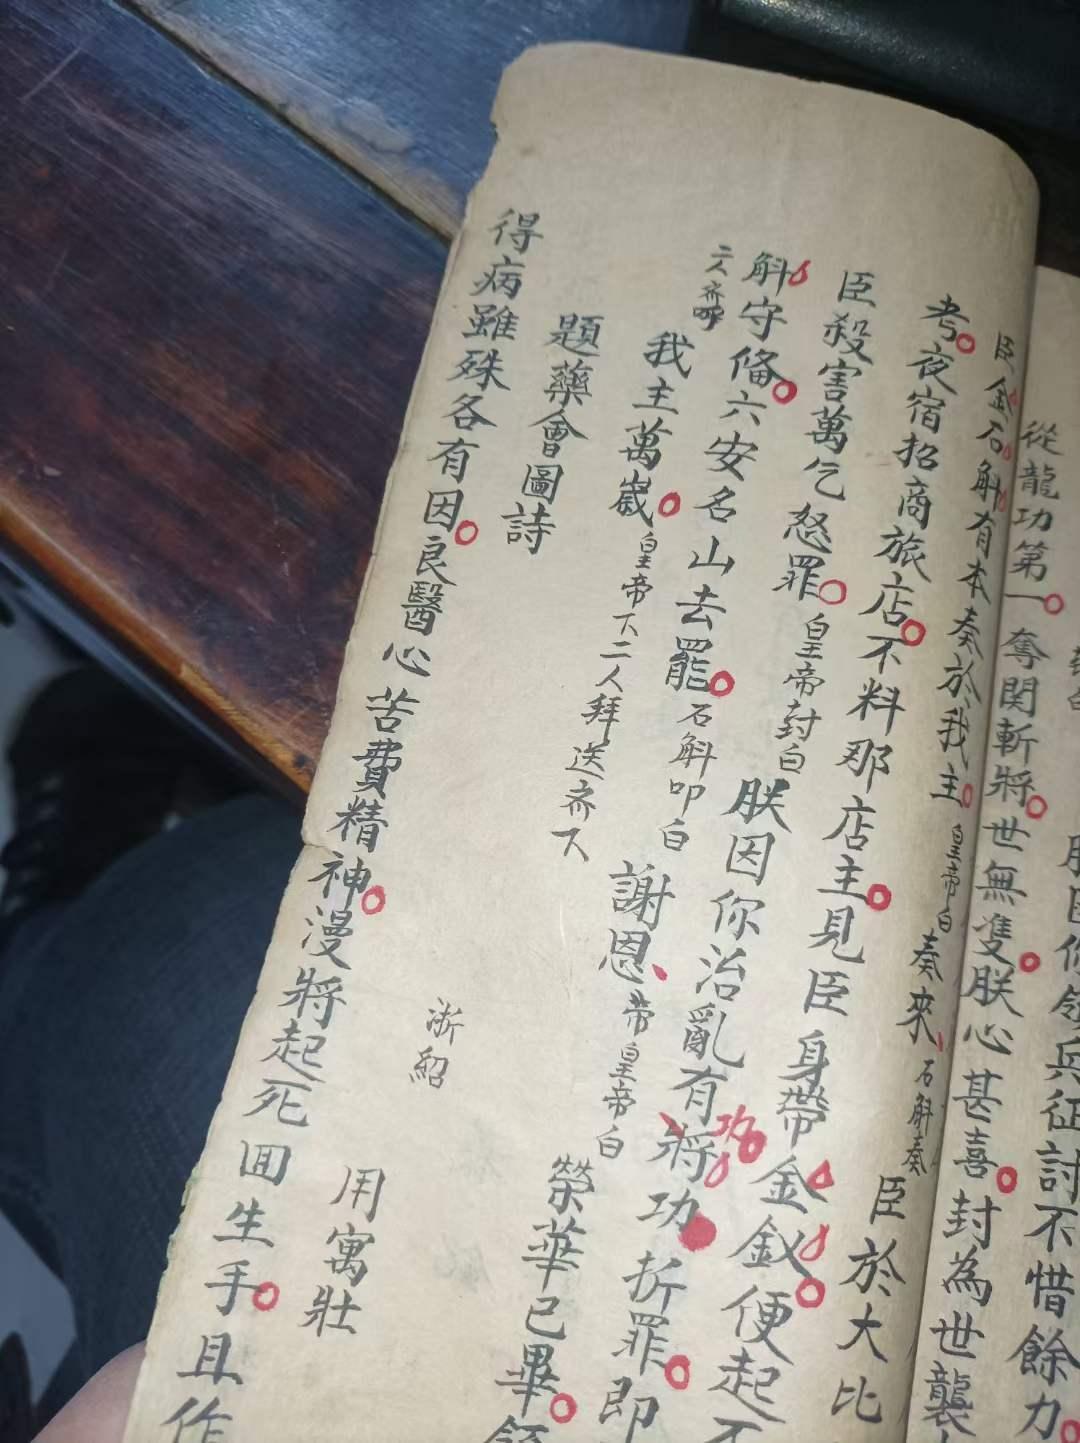 朕因你領兵征討不惜餘力
從龍功第一奪関斬將世無隻朕心甚喜封為世襲
臣金石斛有本奏於我主皇帝白奏來石斛奏臣於大比
考夜宿招商旅店不料那店主見臣身帶金釵便起不
臣殺害萬乞恕罪皇帝封白朕因你治亂有功將功折罪即
斛守俻六安名山去罷石斛叩白謝恩帝皇帝白榮華已畢
二人齐呼我主萬歲皇帝下二人拜送齐下
題藥會圖詩
浙紹
用寓壯
得病雖殊各有因良醫心苦費精神漫將起死囬生手且作